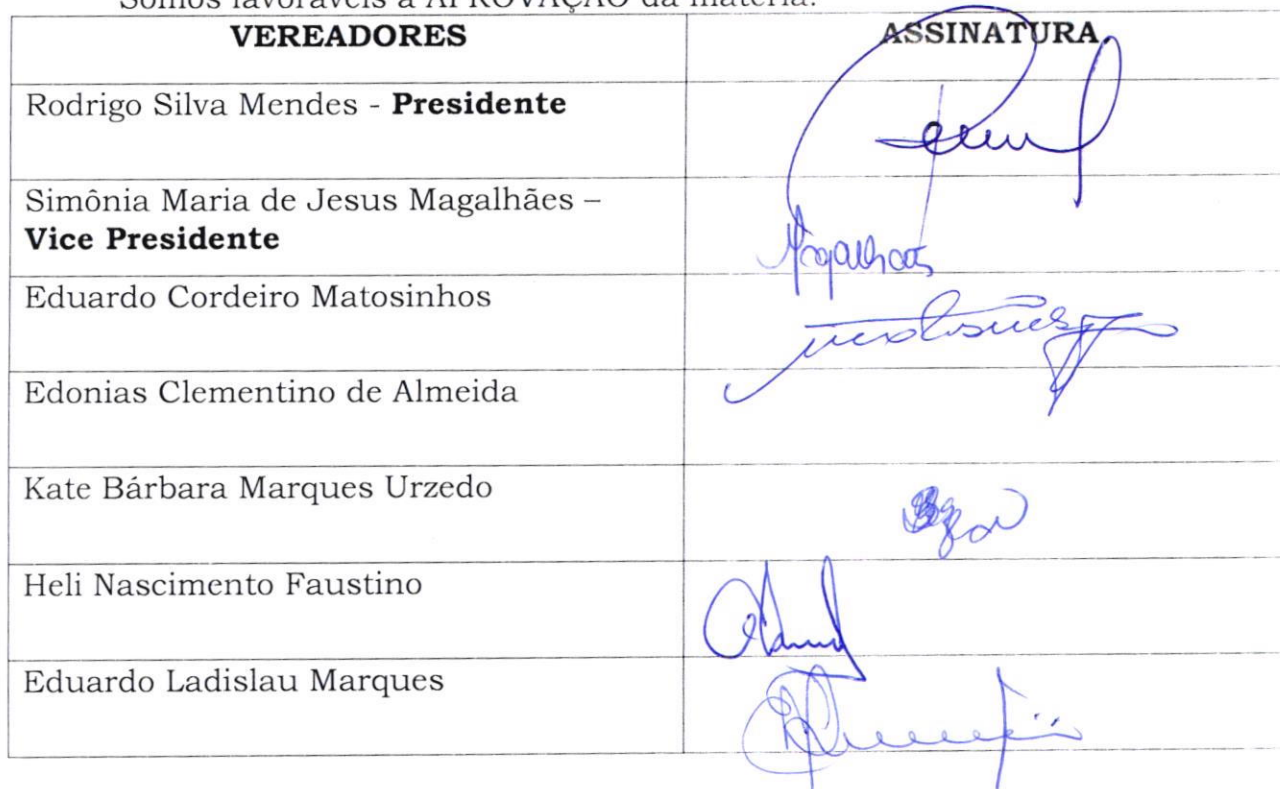 Somos favoráveis à APROVAÇÃO da matéria.
VEREADORES ASSINATURA
Rodrigo Silva Mendes - Presidente
Simônia Maria de Jesus Magalhães –
Vice Presidente
Magalhães
Eduardo Cordeiro Matosinhos
Edonias Clementino de Almeida
Kate Bárbara Marques Urzedo
Heli Nascimento Faustino
Eduardo Ladislau Marques